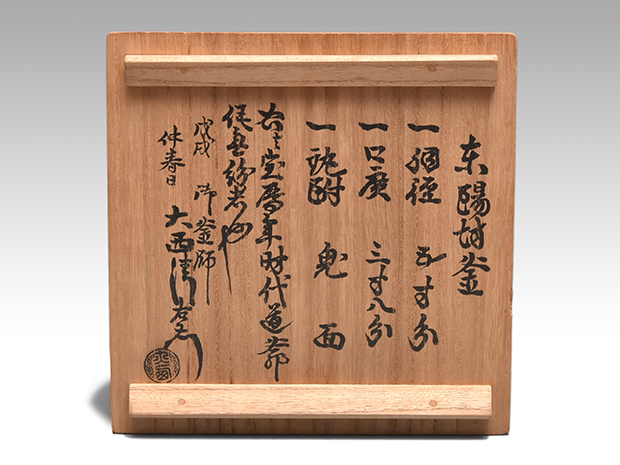 东陽坊釜
一胴径 五寸分
一口廣 三寸八分
一鐶附 鬼面
右ニ宝暦年时代道爺
作無紛者也
戊戌 御釜師
仲春日 大西清右衛门